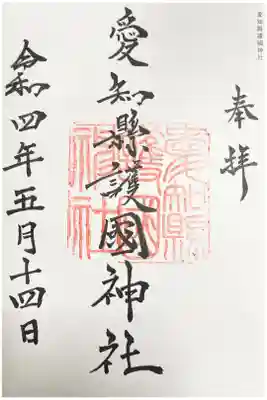 愛知縣護國神社
奉拝
愛知縣護國神社
令和四年五月十四日